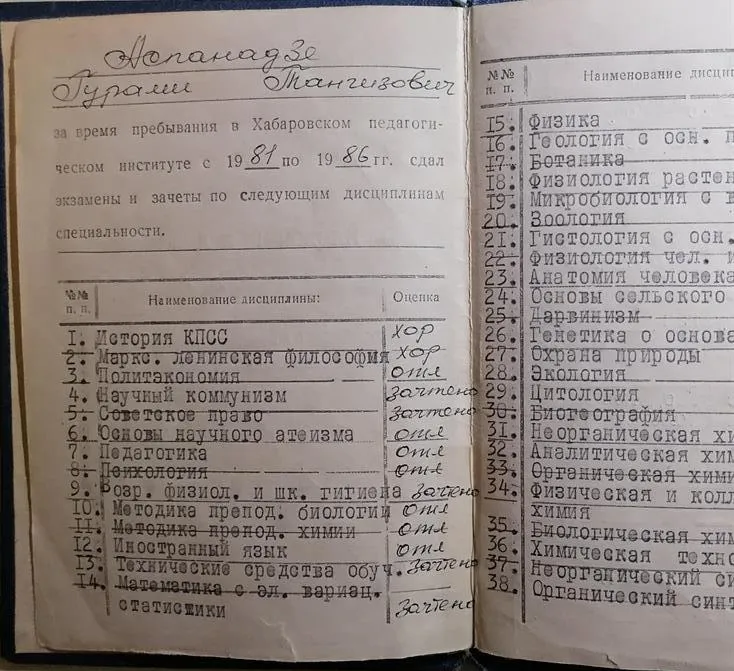 Аспанадзе
Гурами Тангизович
за время пребывания в Хабаровском педагоги-
ческом институте с 1981 по 1986 гг. сдал
экзамены и зачеты по следующим дисциплинам
специальности.
№№ п. п. Наименование дисциплины: Оценка
1. История КПСС хор
2. Маркс. ленинская философия хор
3. Политэкономия отл
4. Научный коммунизм зачтено
5. Советское право зачтено
6. Основы научного атеизма отл
7. Педагогика отл
8. Психология отл
9. Возр. физиол. и шк. гигиена зачтено
10. Методика препод. биологии отл
11. Методика препод. химии отл
12. Иностранный язык отл
13. Технические средства обуч. зачтено
14. Математика с эл. вариац.
статисшики зачтено
№№ п. п. Наименование
15. Физика
16. Геология с осн.
17. Ботаника
18. Физиология
19. Микробиология с
20. Зоология
21. Гистология с осн.
22. Физиология чел.
23. Анатомия человека
24. Основы сельского
25. Дарвинизм
26. Генетика с
27. Охрана природы
28. Экология
29. Цитология
30. Биогеография
31. Неорганическая
32. Аналитическая
33. Органическая
34. Физическая и
химия
35. Биологическая
36. Химическая
37. Неорганический
38. Органический